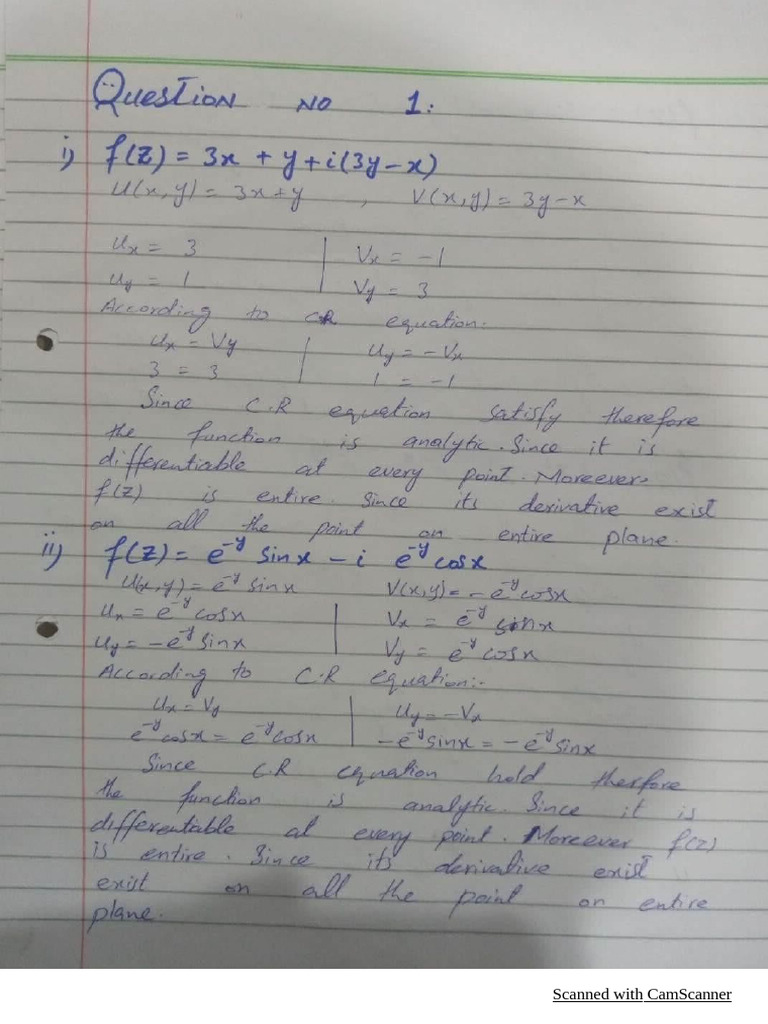 Question No 1:
i) f(z) = 3x + y + i(3y-x)
U(x,y) = 3x+y , V(x,y) = 3y-x
Ux = 3 Vx = -1
Uy = 1 Vy = 3
According to C.R equation.
Ux = Vy Uy = -Vx
3 = 3 1 = -1
Since C.R equation satisfy therefore
the function is analytic. Since it is
differentiable at every point. Moreever,
f(z) is entire. Since its derivative exist
on all the point on entire plane.
ii) f(z) = e^-y sinx - i e^-y cosx
U(x,y) = e^-y sinx V(x,y) = -e^-y cosx
Ux = e^-y cosx Vx = e^-y sinx
Uy = -e^-y sinx Vy = e^-y cosx
According to C.R equation:-
Ux = Vy Uy = -Vx
e^-y cosx = e^-y cosx -e^-y sinx = -e^-y sinx
Since C.R equation hold therfore
the function is analytic. Since it is
differentable at every point. Moreever f(z)
is entire. Since its derivative exist
exist on all the point on entire
plane.
Scanned with CamScanner